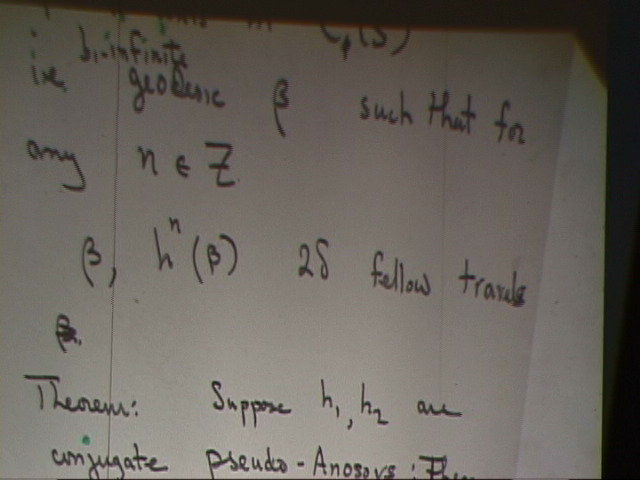 bi-infinite
i.e. geodesic β such that for
any n ∈ Z
β, hⁿ(β) 2δ fellow travels
Theorem: Suppose h₁, h₂ are
conjugate pseudo-Anosovs: Then